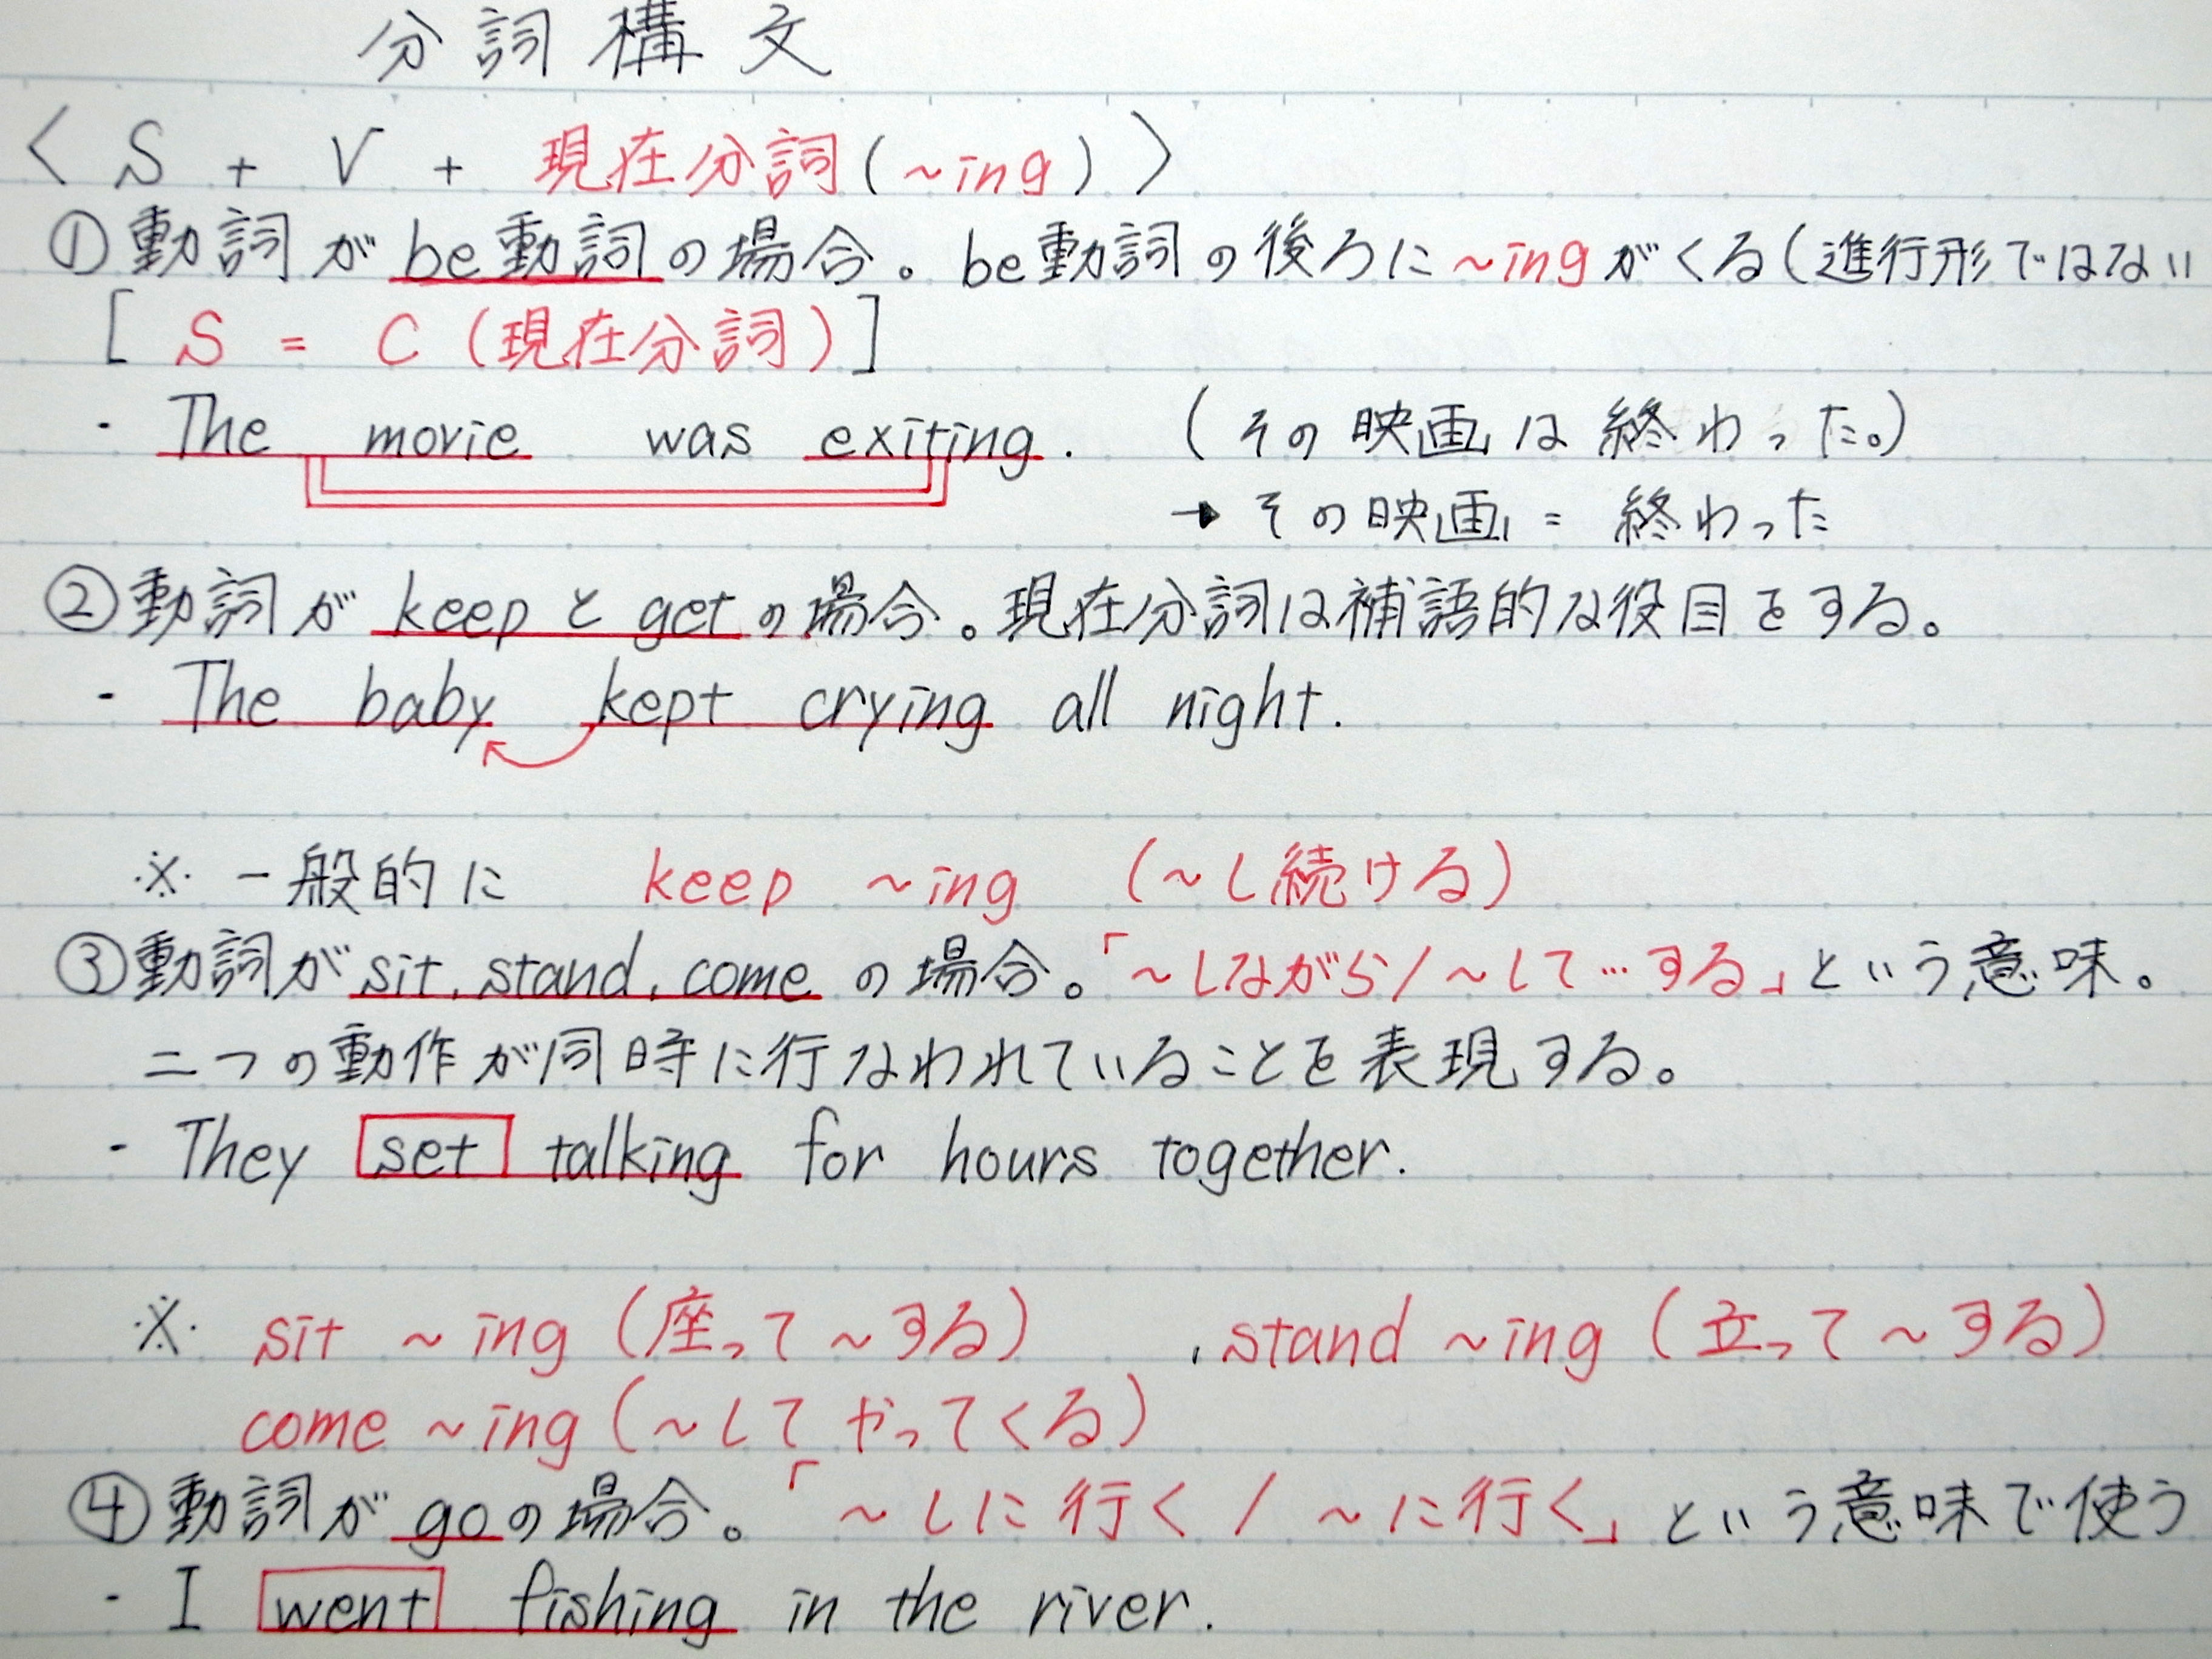 分詞構文
〈 S + V + 現在分詞(~ing) 〉
①動詞がbe動詞の場合。be動詞の後ろに~ingがくる(進行形ではない
[ S = C (現在分詞) ]
- The movie was exiting. (その映画は終わった。)
→ その映画 = 終わった
②動詞がkeepとgetの場合。現在分詞は補語的な役目をする。
- The baby kept crying all night.
※ 一般的に keep ~ing (~し続ける)
③動詞がsit, stand, comeの場合。「~しながら/~して…する」という意味。
二つの動作が同時に行なわれていることを表現する。
- They set talking for hours together.
※ sit ~ing (座って~する) , stand ~ing (立って~する)
come ~ing (~してやってくる)
④動詞がgoの場合。「~しに行く/~に行く」という意味で使う
- I went fishing in the river.